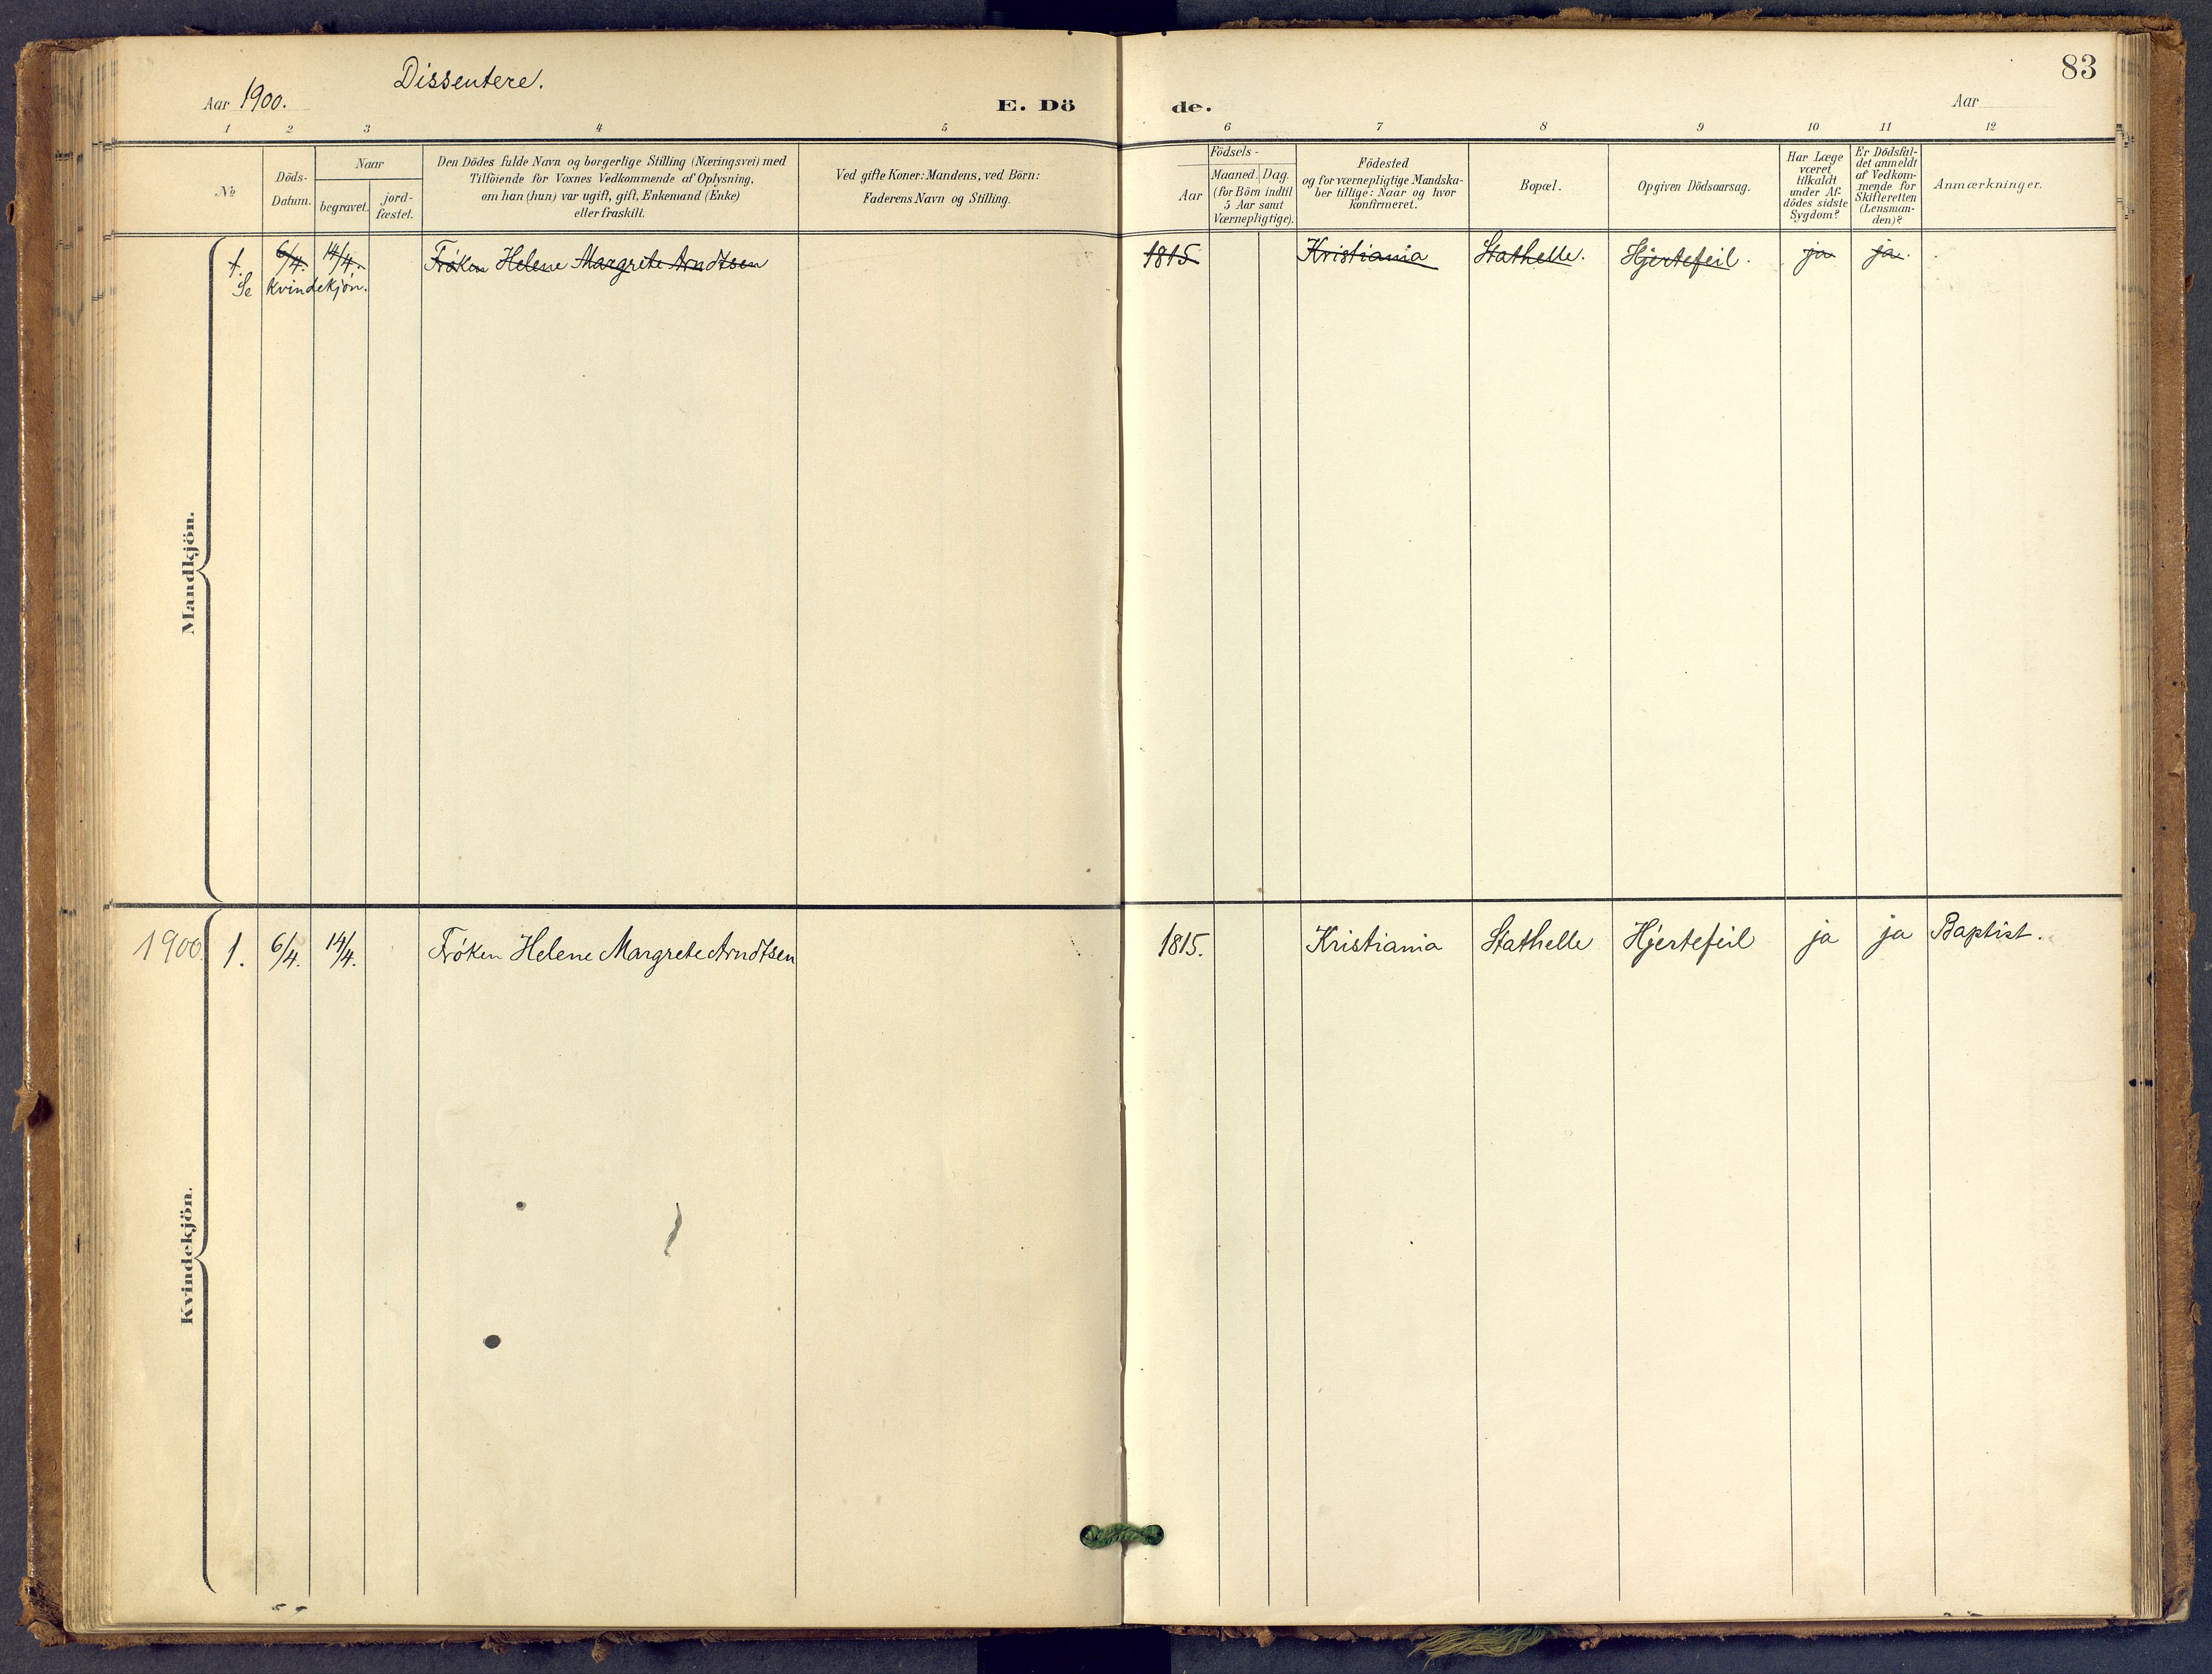 Dissentere.
83
Aar 1900.
E. Dö
de.
Aar
1 2 3 4 5 6 7 8 9 10 11 12
No
Döds-
Datum.
Naar
begravet.
jord-
fæstet.
Den Dödes fulde Navn og borgerlige Stilling (Næringsvei) med
Tilföiende for Voxnes Vedkommende af Oplysning,
om han (hun) var ugift, gift, Enkemand (Enke)
eller fraskilt.
Ved gifte Koner: Mandens, ved Börn:
Faderens Navn og Stilling.
Födsels-
Aar
Maaned. Dag.
(for Börn indtil
5 Aar samt
Værnepligtige).
Födested
og for værnepligtige Mandska-
ber tillige: Naar og hvor
konfirmeret.
Bopæl.
Opgiven Dödsaarsag.
Har Læge
været
tilkaldt
under Af-
dödes sidste
Sygdom?
Er Dödsfal-
det anmeldt
af Vedkom-
mende for
Skifteretten
(Lensman-
den)?
Anmærkninger.
Mandkjön.
1. 6/4. 14/4. Frøken Helene Margrete Arndtsen 1815 Kristiania Stathelle. Hjertefeil. ja ja.
Se Kvindekjøn.
Kvindekjön.
1900. 1. 6/4. 14/4. Frøken Helene Margrete Arndtsen 1815. Kristiania Stathelle Hjertefeil ja ja Baptist.